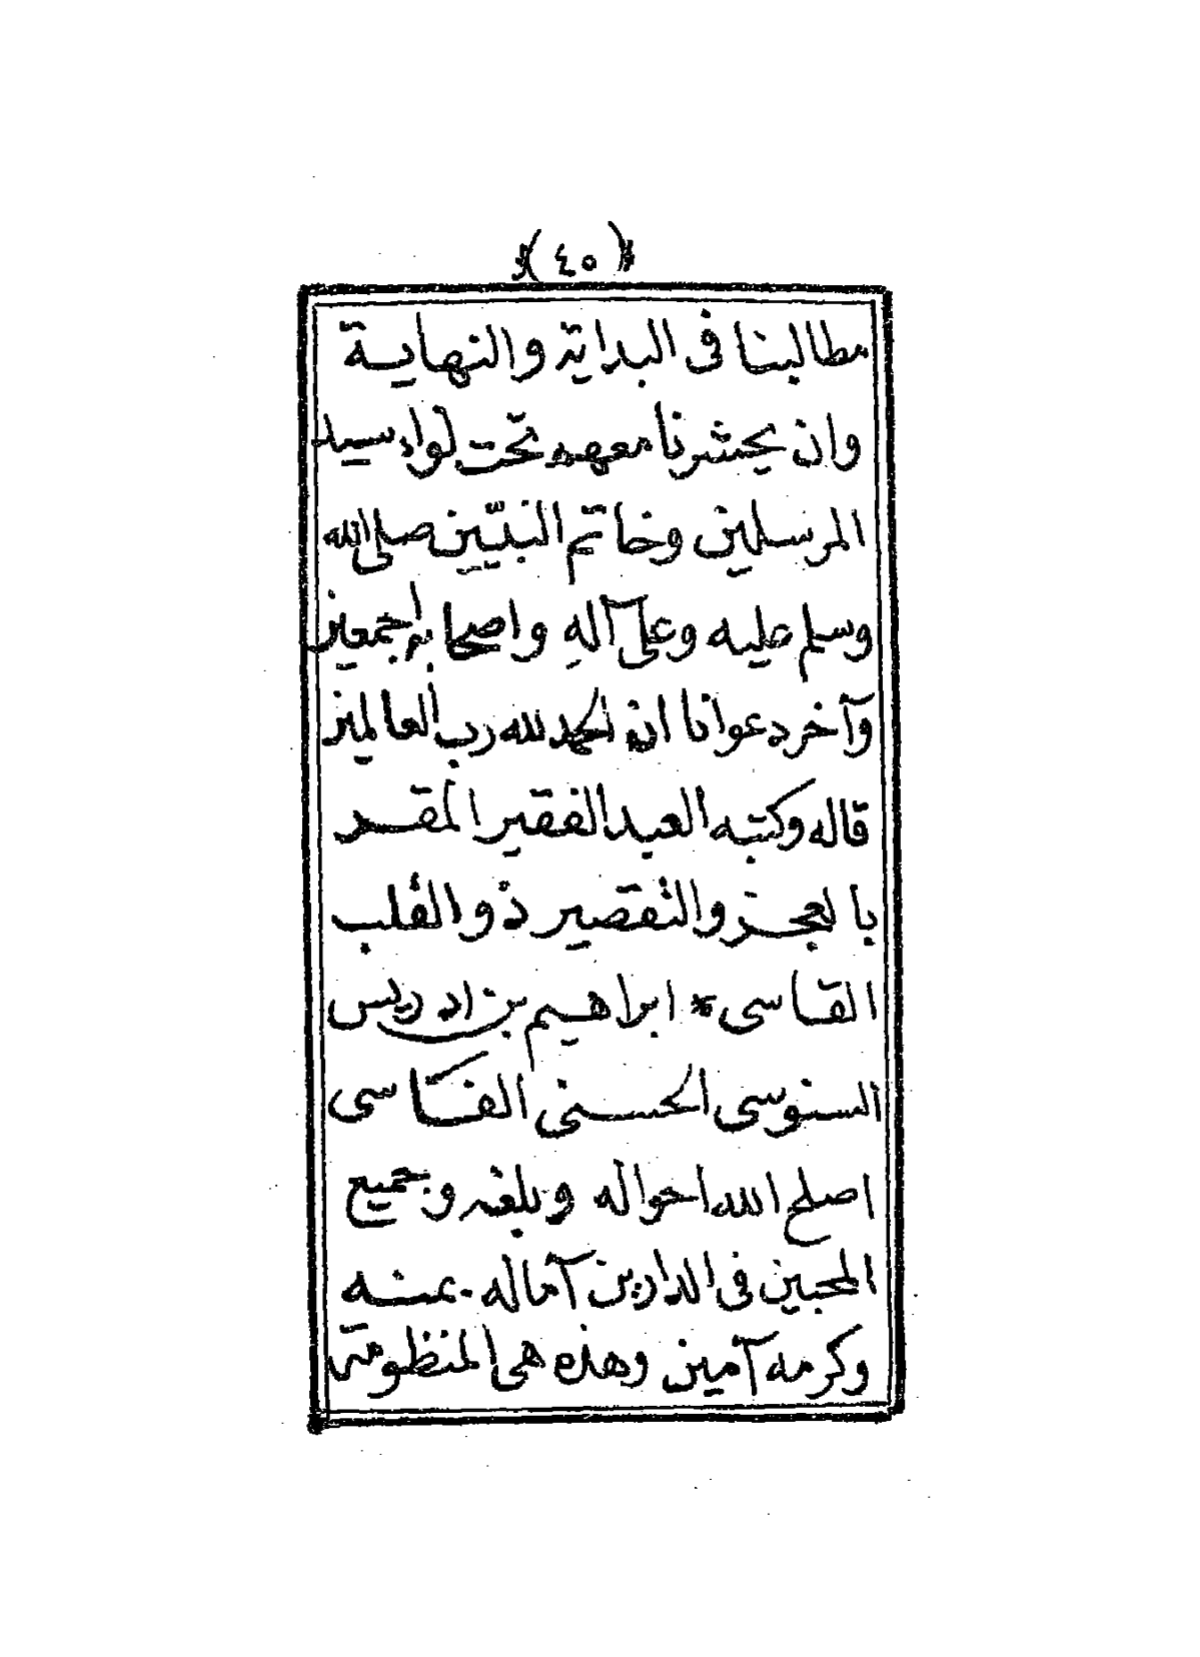 (٤٥)
مطالبنا فى البداية والنهاية
وان يحشرنا معهم تحت لواء سيد
المرسلين وخاتم النبيّين صلى الله
وسلم عليه وعلى آلهِ واصحابه اجمعين
وآخر دعوانا ان الحمد لله رب العالمين
قاله وكتبه العبد الفقير المقـر
بالعجز والتقصير ذو القلب
القاسى * ابراهيم بن ادريس
السنوسى الحسنى الفاسى
اصلح الله احواله وبلغه وجميع
المحبين فى الدارين آماله . بمنه
وكرمه آمين وهذه هى المنظومة